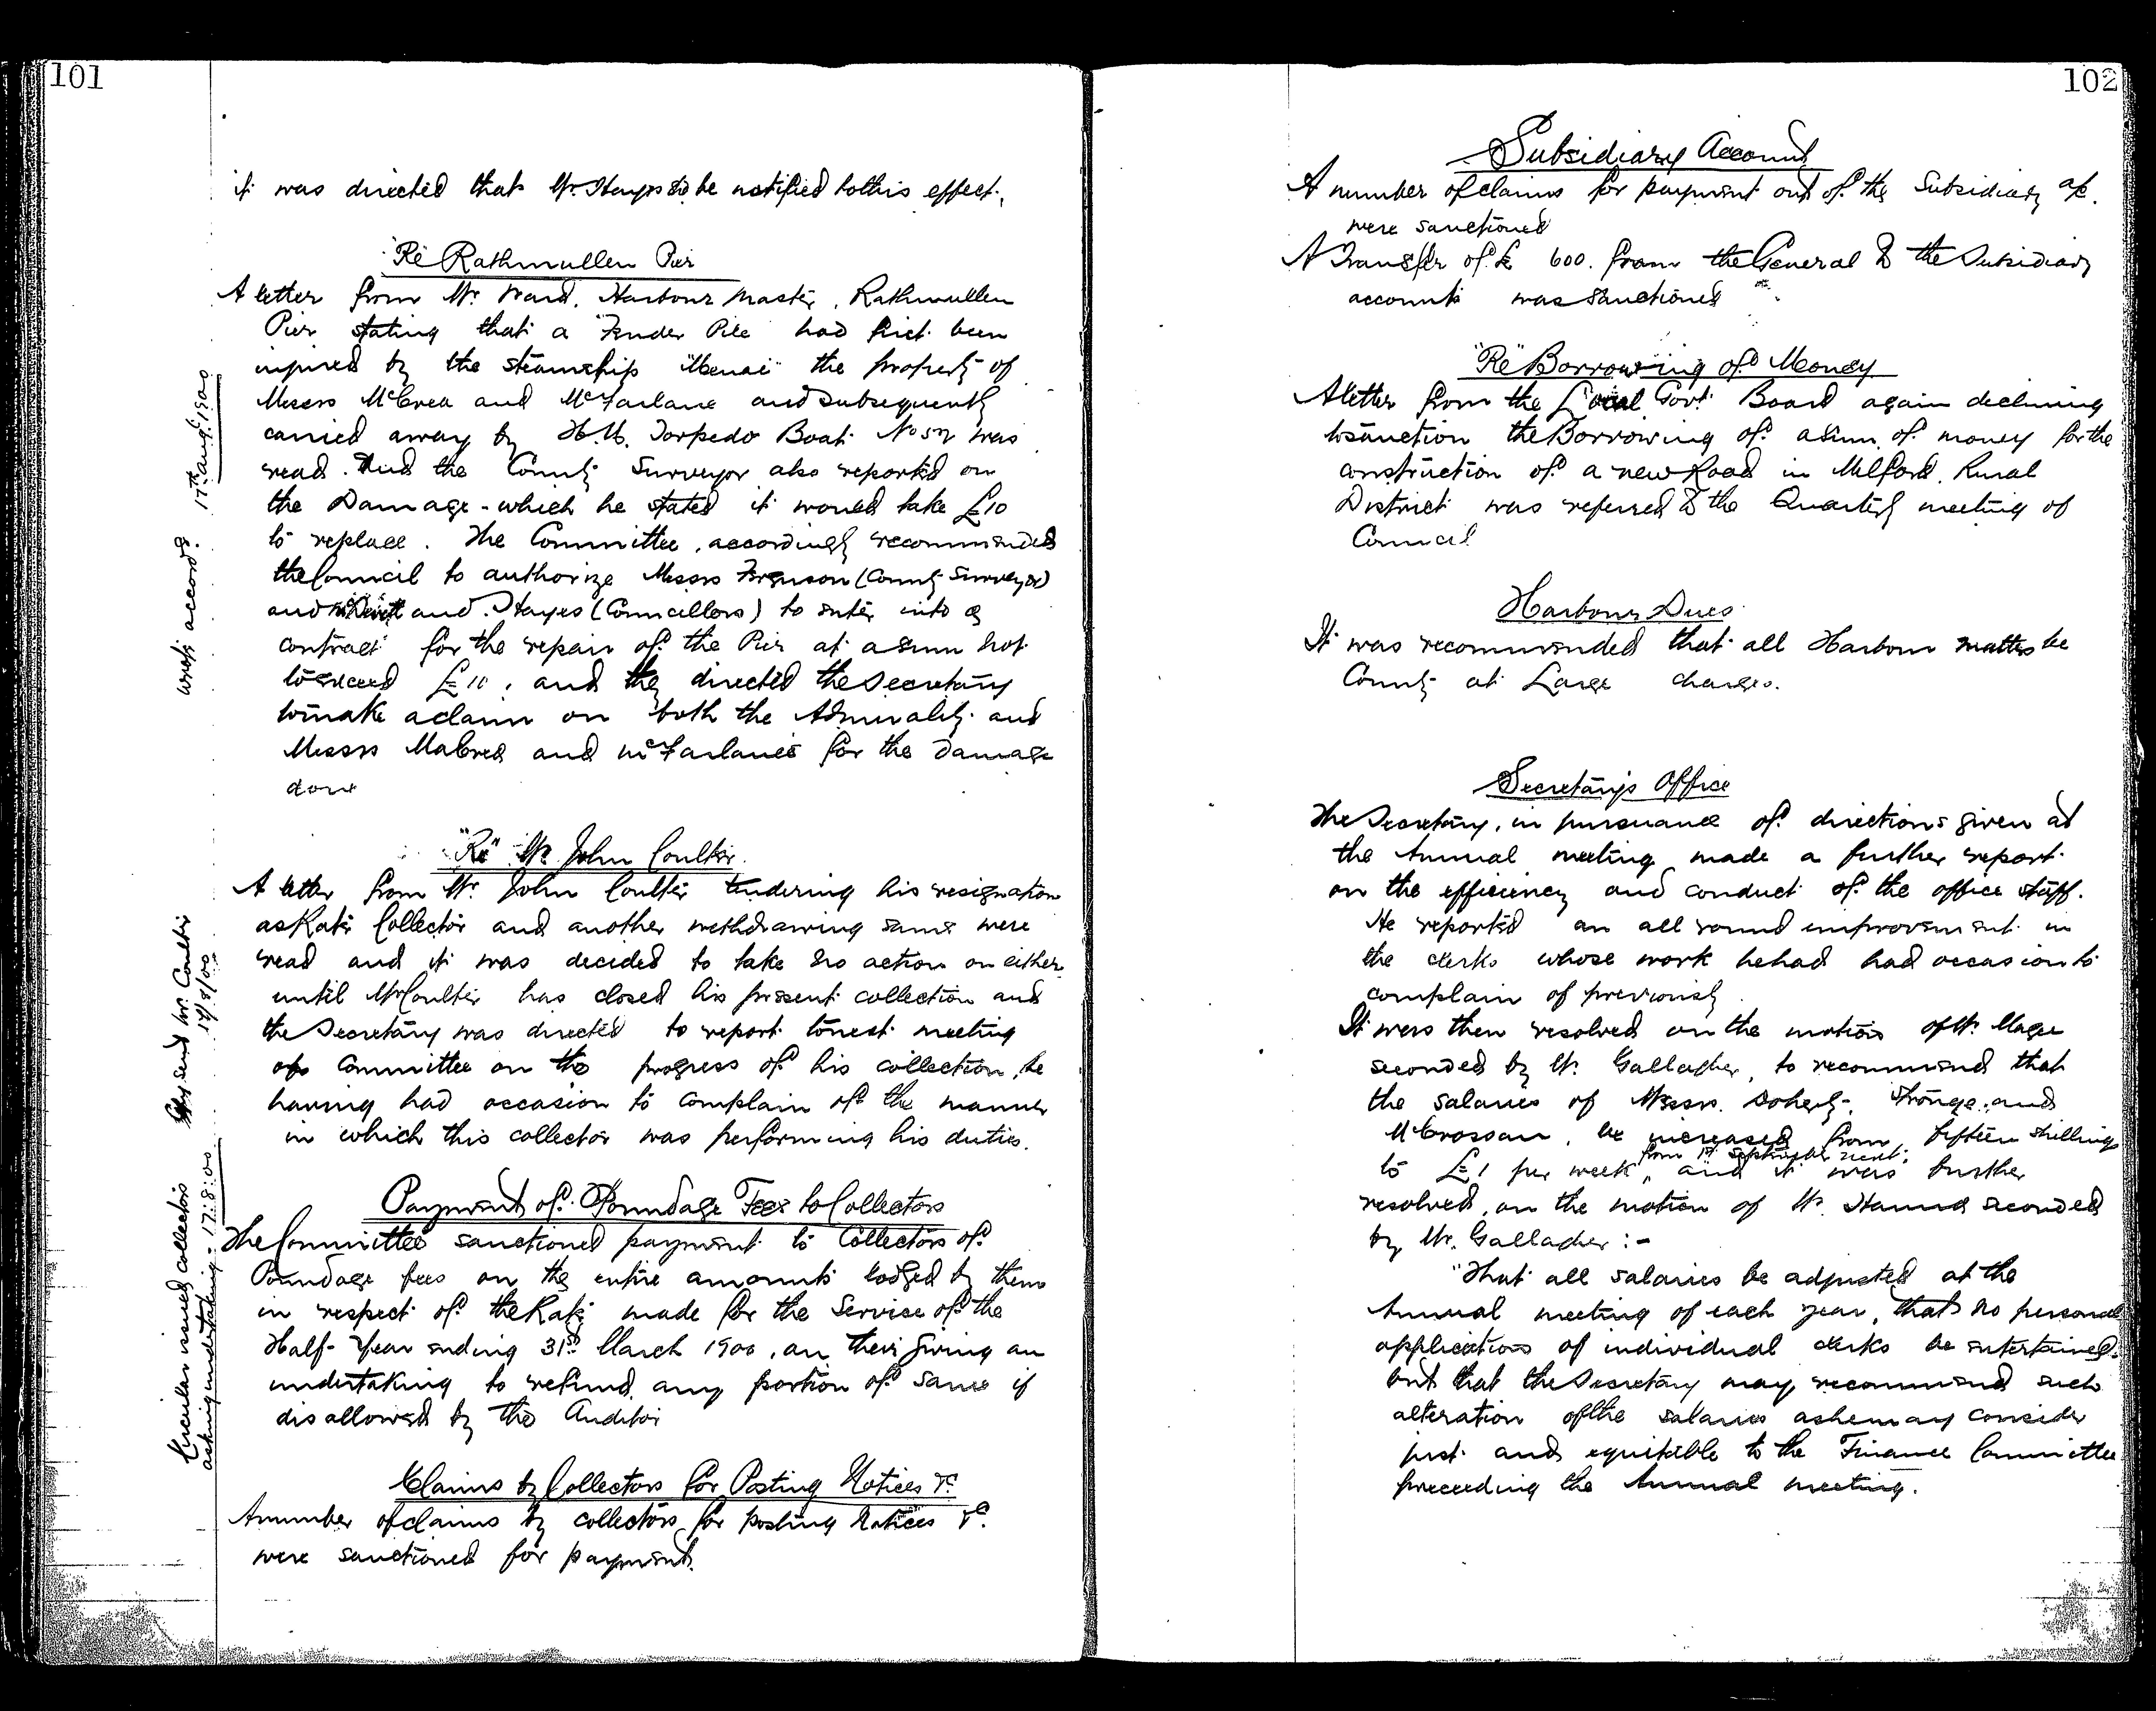 101
it was directed that Mr. Hayes be notified to this effect.
"Re" Rathmullen Pier
A letter from Mr. Ward, Harbour Master, Rathmullen
Pier stating that a Fender Pile had first been
injured by the steamship "Menai" the property of
Messrs McCrea and McFarlane and subsequently
carried away by H.M. Torpedo Boat No 57 was
read. And the County Surveyor also reported on
the Damage - which he stated it would take £10
to replace. The Committee, accordingly recommended
the Council to authorize Messrs Ferguson (County Surveyor)
and and Hayes (Councillors) to enter into a
contract for the repair of the Pier at a sum not
to exceed £10, and they directed the Secretary
to make a claim on both the Admiralty and
Messrs MaCrea and McFarlane's for the damage
done
wrote accordg. 17th Aug. 1900
"Re" Mr. John Coulter
A letter from Mr. John Coulter tendering his resignation
as Rate Collector and another withdrawing same were
read and it was decided to take no action on either
until Mr Coulter has closed his present collection and
the Secretary was directed to report to next meeting
of Committee on the progress of his collection, he
having had occasion to complain of the manner
in which this collector was performing his duties.
Copy send Mr. Coulter
17/8/00
Payment of Poundage Fees to Collectors
The Committee sanctioned payment to Collectors of
Poundage fees on the entire amounts lodged by them
in respect of the Rate made for the Service of the
Half-Year ending 31st March 1900, on their giving an
undertaking to refund any portion of same if
disallowed by the Auditor
Circular issued collectors
asking undertaking - 17:8:00
Claims by Collectors for Posting Notices &c
A number of claims by collectors for posting Notices &c.
were sanctioned for payment.
102
Subsidiary Account
A number of claims for payment out of the Subsidiary a/c.
were sanctioned
A Transfer of £ 600. from the General to the Subsidiary
accounts was sanctioned
"Re" Borrowing of Money
A letter from the Local Govt. Board again declining
to sanction the Borrowing of a sum of money for the
construction of a new Road in Milford Rural
District was referred to the Quarterly meeting of
Council
Harbour Dues
It was recommended that all Harbour matters be
County at Large charges.
Secretary's Office
The Secretary, in pursuance of directions given at
the Annual meeting made a further report
on the efficiency and conduct of the office staff.
He reported an all round improvement in
the clerks whose work he had had occasion to
complain of previously
It was then resolved on the motion of Mr. Magee
seconded by Mr. Gallagher, to recommend that
the salaries of Messrs. Doherty, Stronge, and
McCrossan, be increased from fifteen shillings
from 1st September next,
to £1 per week, and it was further
resolved, on the motion of Mr. Hanna seconded
by Mr. Gallagher:-
"That all salaries be adjusted at the
Annual meeting of each year, that no personal
applications of individual clerks be entertained.
but that the Secretary may recommend such
alteration of the salaries as he may consider
just and equitable to the Finance Committee
preceeding the Annual meeting.